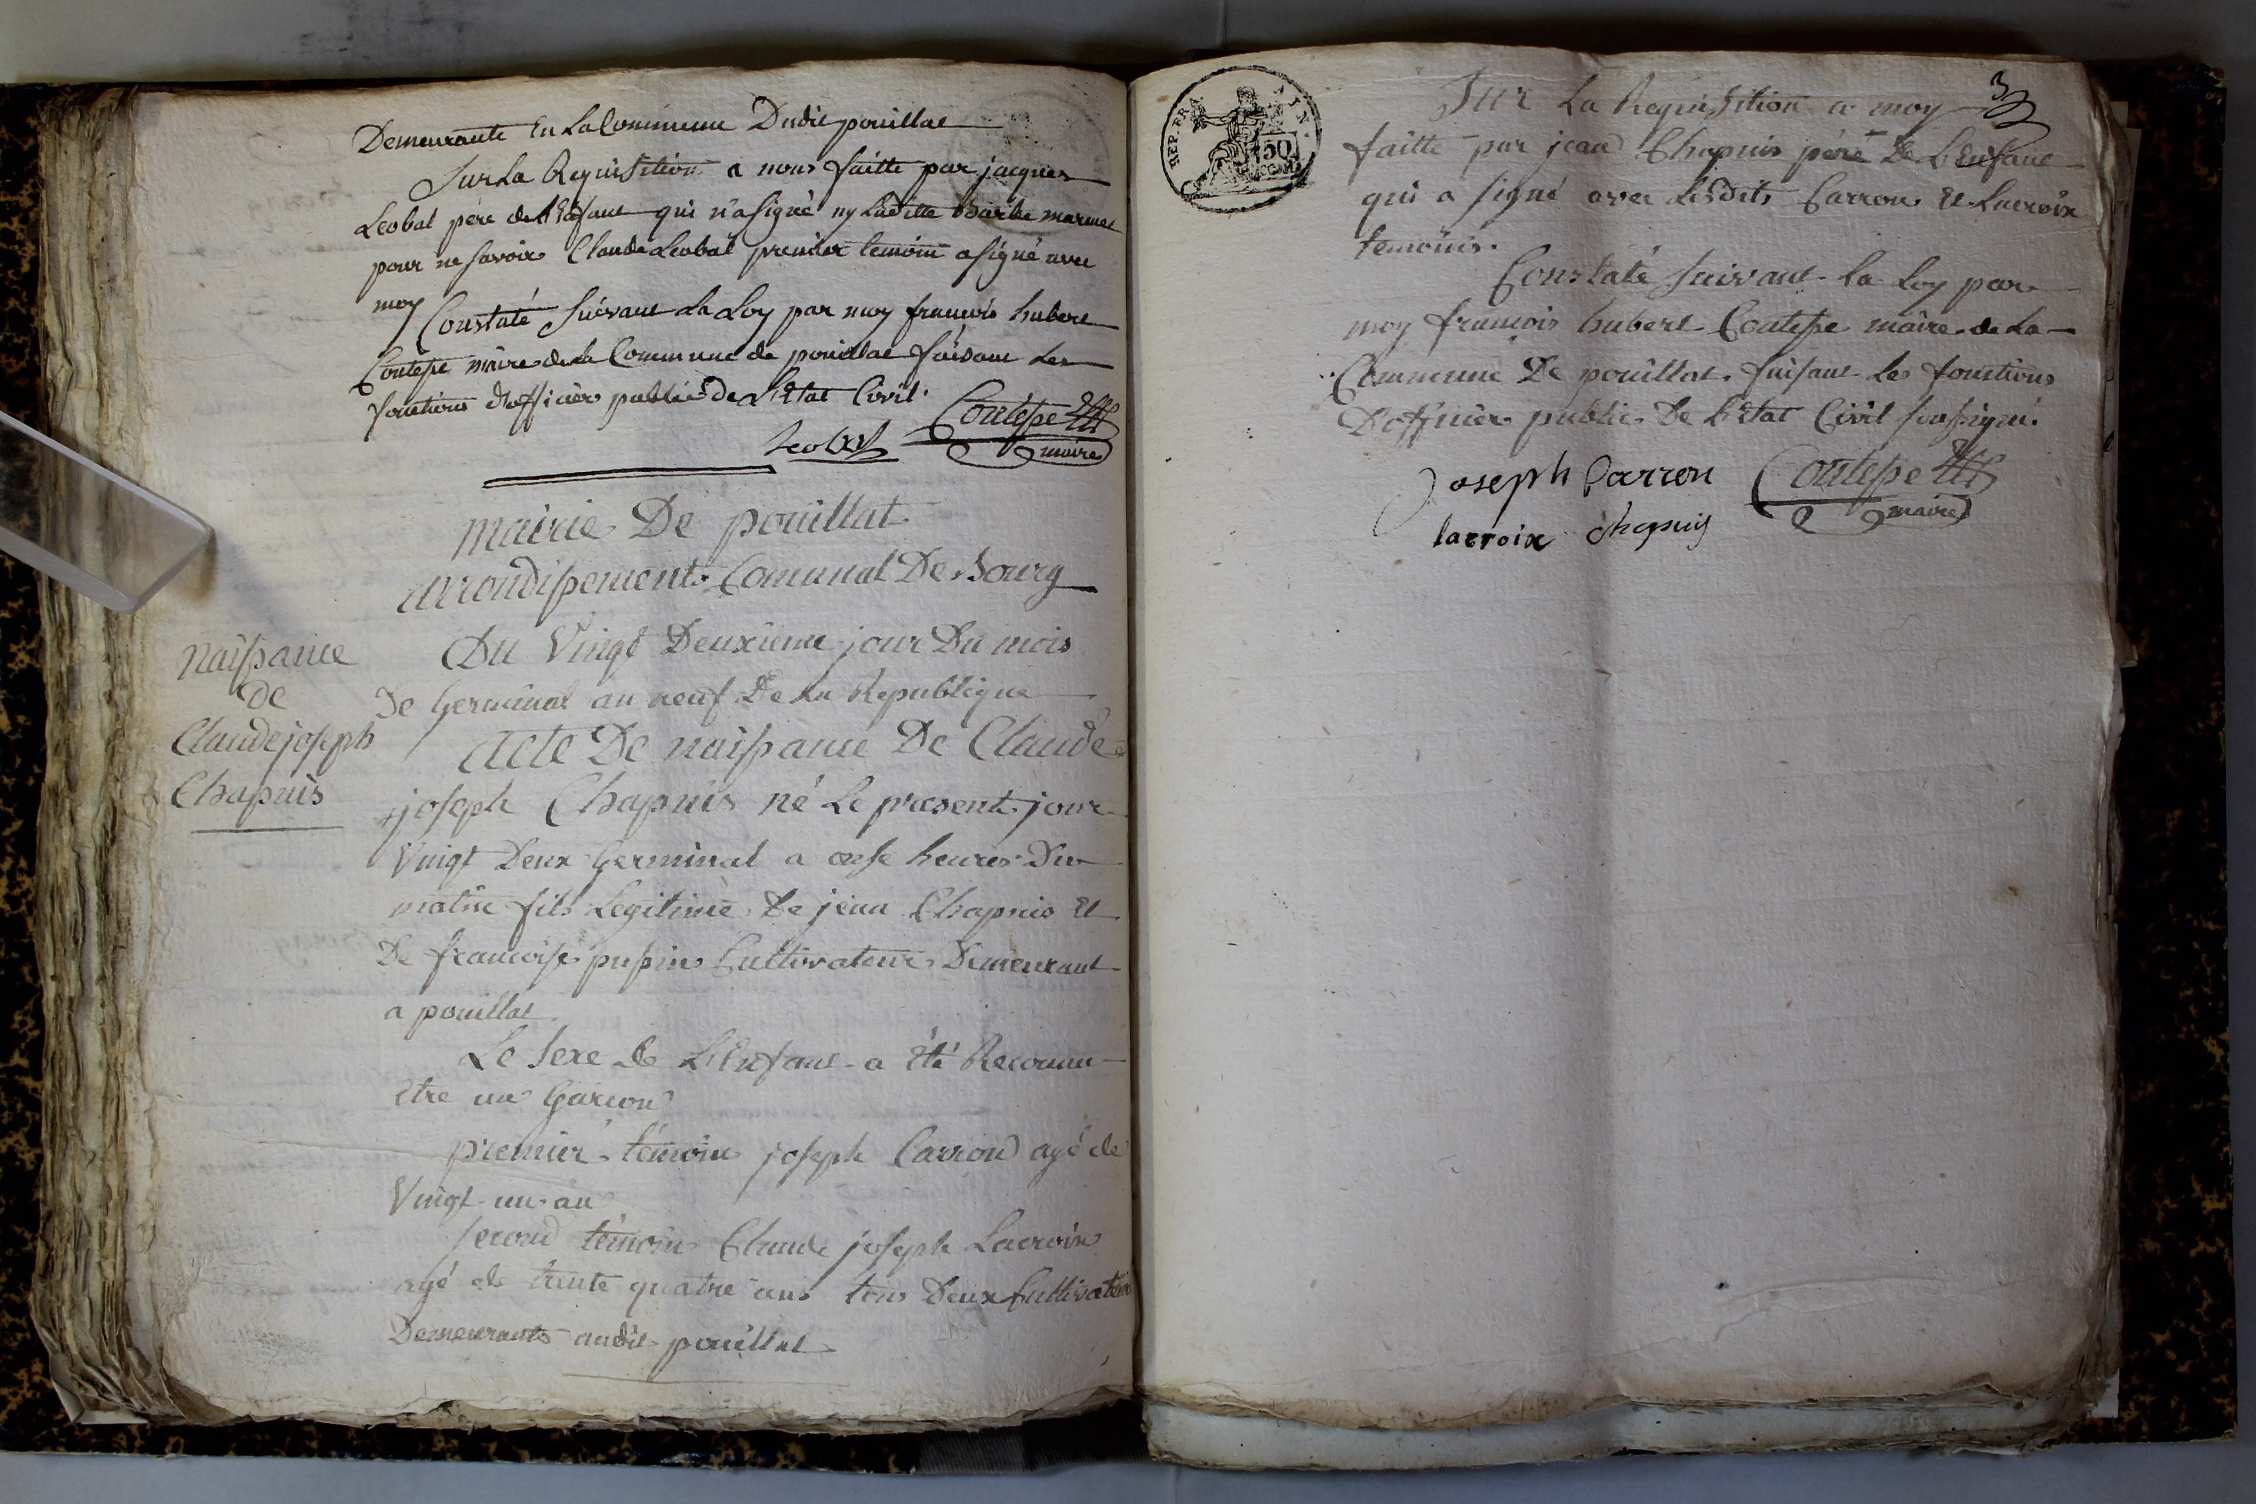 Demeurante En La Commune Dudit pouillat
Sur La Requisition a nous faitte par jacques
Leobat père de l'Enfant qui n'a signé ny Laditte Barbe marmet
pour ne savoir Claude Leobat premier temoin a signé avec
moy
Constaté suivant La Loy par moy francois hubert
Coutepe maire de la Commune de pouillat faisant Les
fonctions d'officier public de L'Etat Civil.
Leobat Coutepe
maire
mairie De pouillat
arrondissement Comunal De Bourg
Naissance
de
Claude joseph
Chapuis
Du Vingt Deuxieme jour Du mois
De Germinal an neuf De La République
Acte De naissance De Claude
joseph Chapuis né Le present jour
Vingt Deux Germinal a onse heures Du
matin fils Legitime De jean Chapuis Et
De francoise pupin Cultivateur Demeurant
a pouillat
Le sexe de L'Enfant a été Reconnu
Etre un Garcon
premier témoin joseph Carron agé de
Vingt un an
second témoin Claude joseph Lacroix
agé de trente quatre ans tous Deux Cultivateur
Demeurants audit pouillat
REP. FRA. TIN.
50
CENT
3
Sur La Requisition a moy
faitte par jean Chapuis père De L'Enfant
qui a signé avec Lesdits Carron Et Lacroix
temoins.
Constaté suivant La Loy par
moy francois hubert Coutepe maire de La
Commune De pouillat faisant les fonctions
D'officier public De L'Etat Civil soussigné.
joseph Carron Coutepe
maire
lacroix chapuis